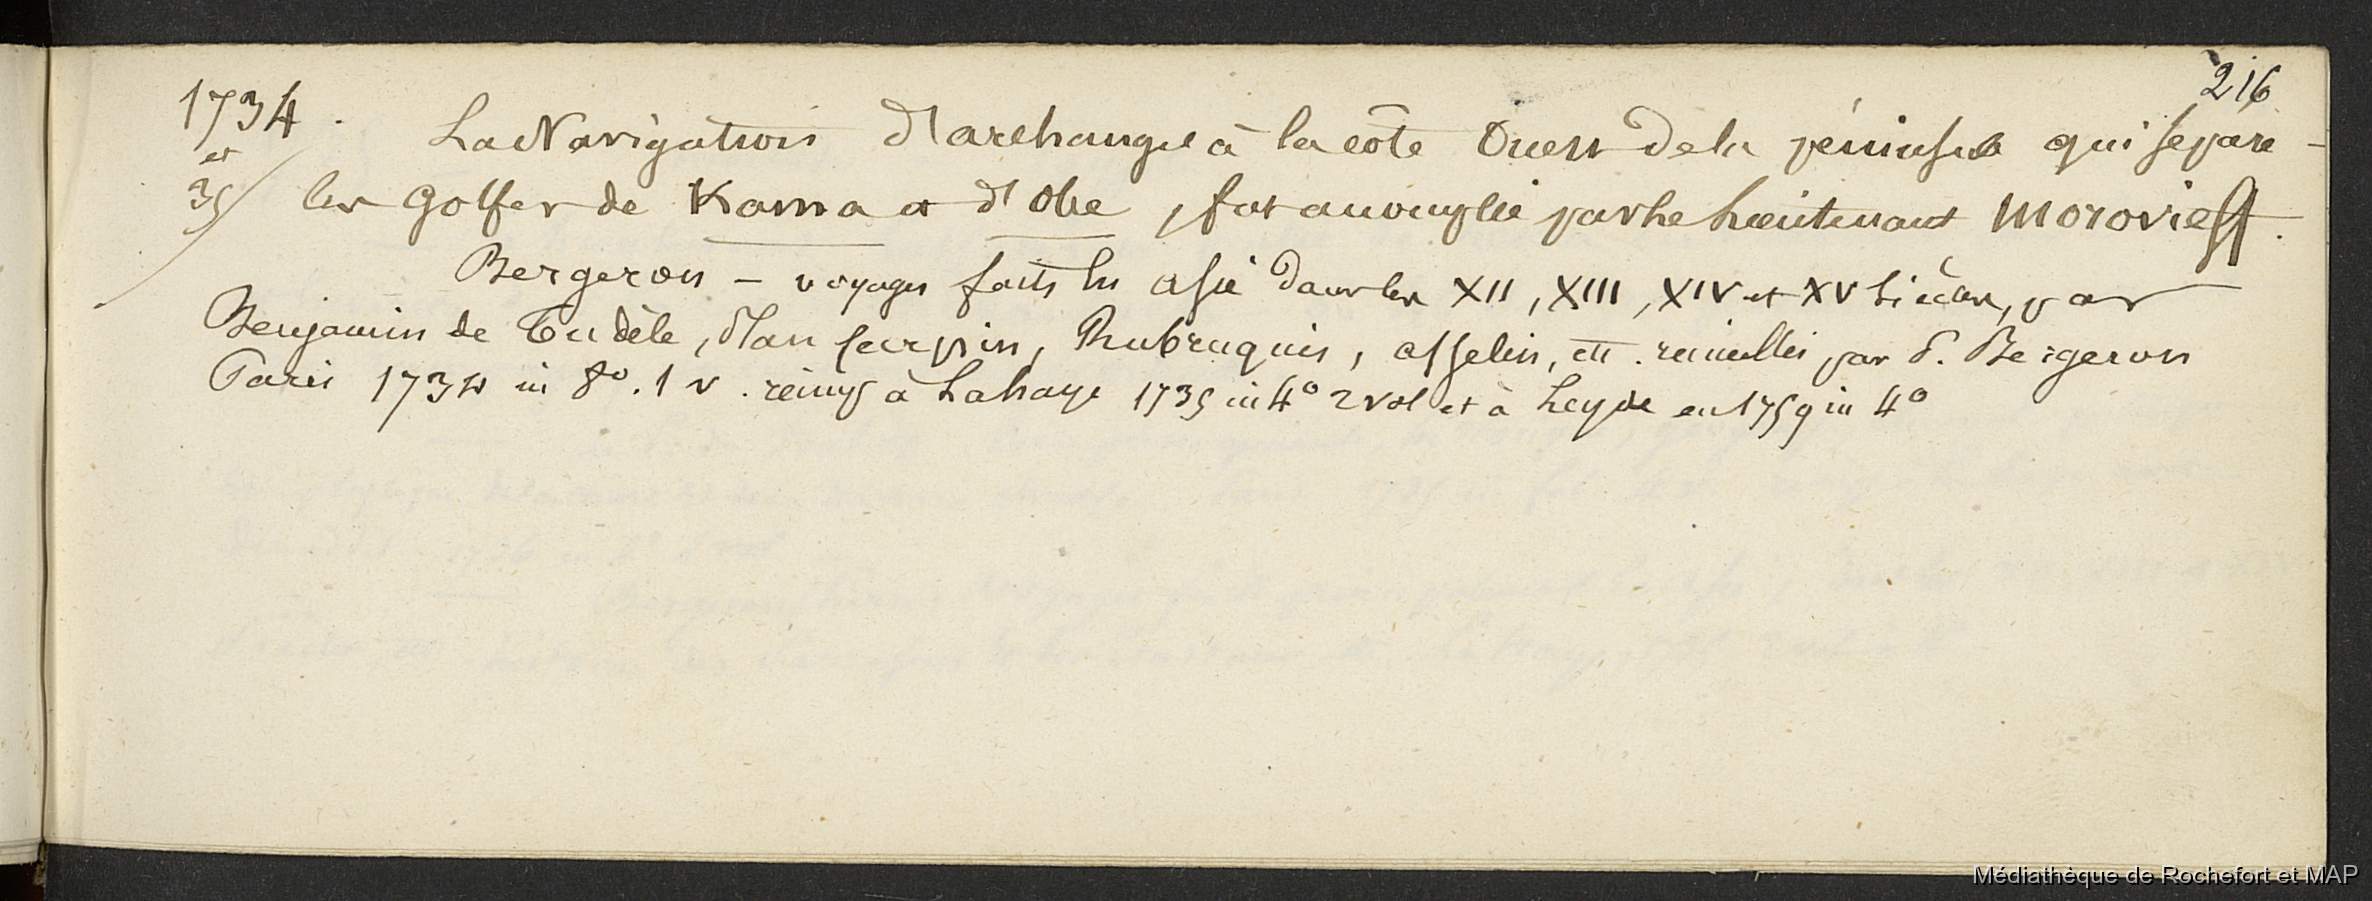 216
1734.
et
35
La Navigation d'archangel à la côte Ouest de la péninsule qui sépare
les Golfes de Kama et d'Obe, fut accomplie par le Lieutenant Morovieff.
Bergeron – voyages faits en asie dans les XII, XIII, XIV et XV siècles, par
Benjamin de Tudèle, Jan Carpin, Rubruquis, asselin, etc. recueillis par P. Bergeron
Paris 1734 in 8º. 1 v. réimp à Lahaye 1735 in 4º 2 vol et à Leyde en 1759 in 4º
Médiathèque de Rochefort et MAP